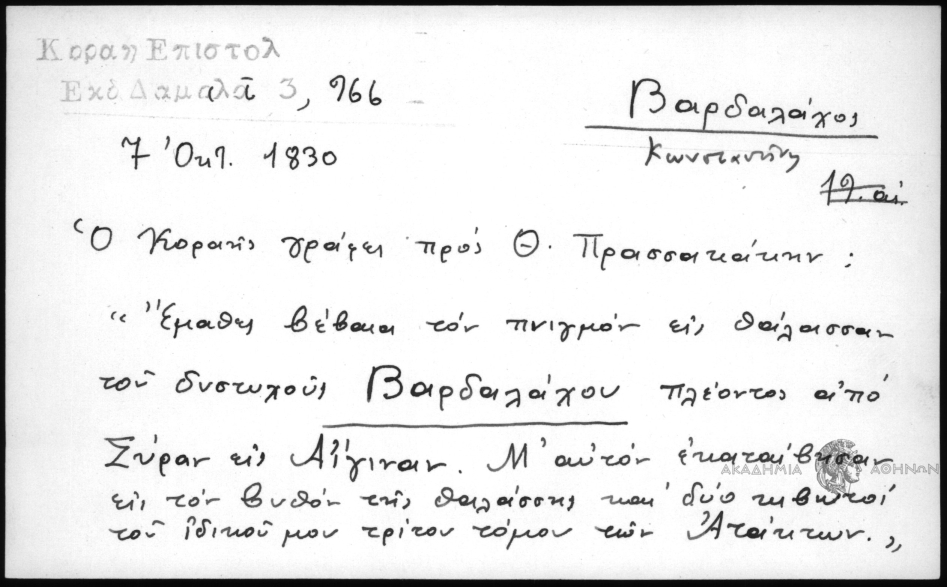 Κοραη Επιστολ
Εκδ Δαμαλᾶ 3, 966
Βαρδαλάχος
Κωνσταντίνος
7 Ὀκτ. 1830
19. αἰ.
Ὁ Κοραῆς γράφει πρός Θ. Πρασσακάκην :
“ Ἔμαθες βέβαια τόν πνιγμόν εἰς θάλασσαν
τοῦ δυστυχοῦς Βαρδαλάχου πλέοντος ἀπό
Σύραν εἰς Αἴγιναν. Μ' αὐτόν ἐκαταίβησαν
εἰς τόν βυθόν τῆς θαλάσσης καί δύο κιβωτοί
τοῦ ἰδικοῦ μου τρίτου τόμου τῶν Ἀτάκτων. „
ΑΚΑΔΗΜΙΑ ΑΘΗΝΩΝ